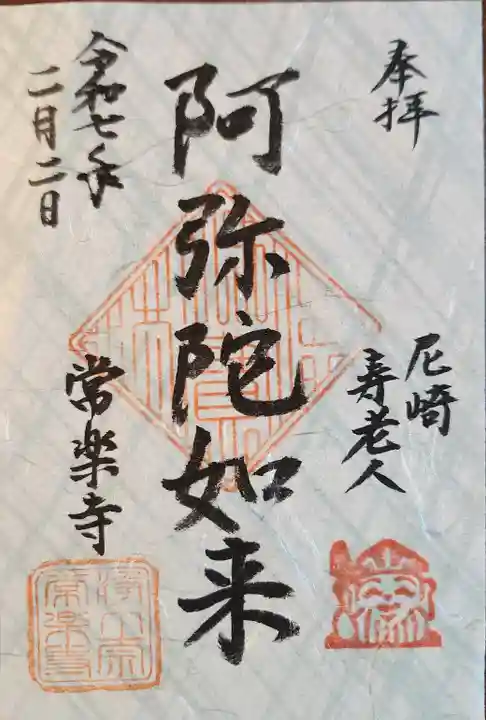 奉拝
尼崎
寿老人
阿弥陀如来
令和七年
二月二日
常楽寺